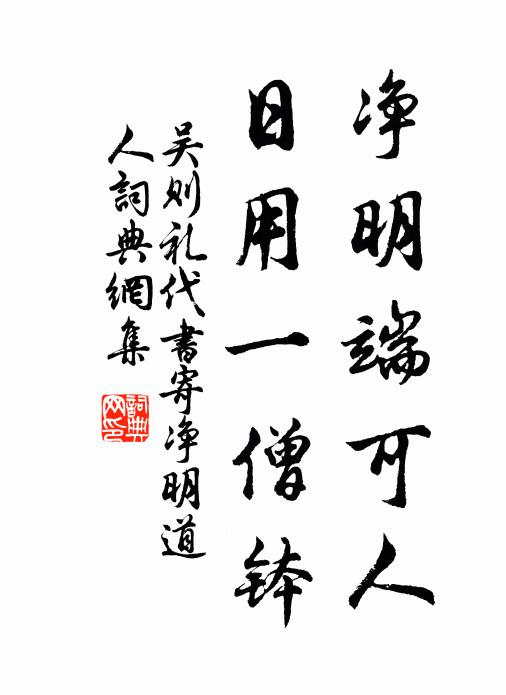 净明端可人
日用一僧钵
吴则礼代書寄净明道
人詞典網集
詞典
网印